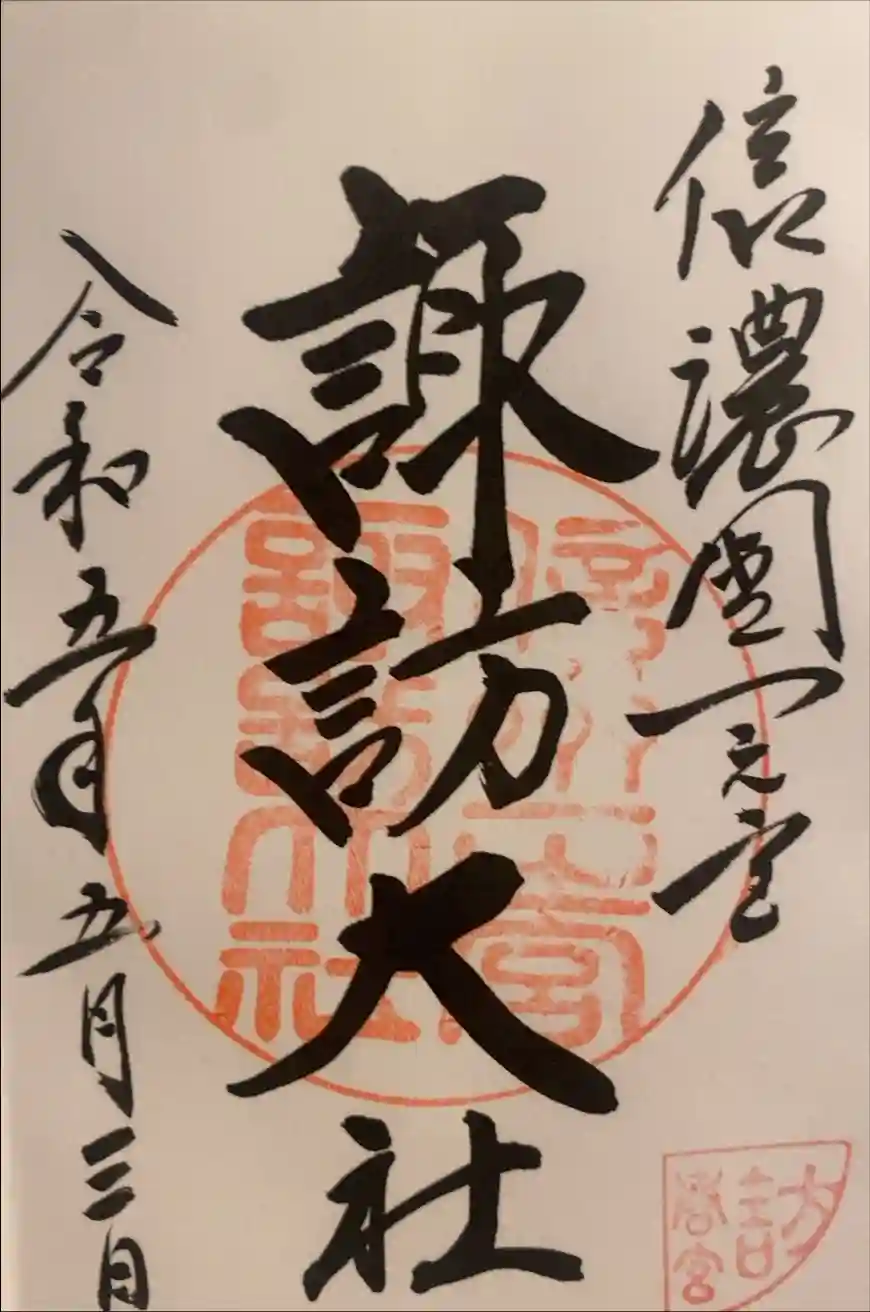 信濃國一之宮
諏訪大社
令和五年五月三日
信州一之宮
諏訪大社
訪
春宮